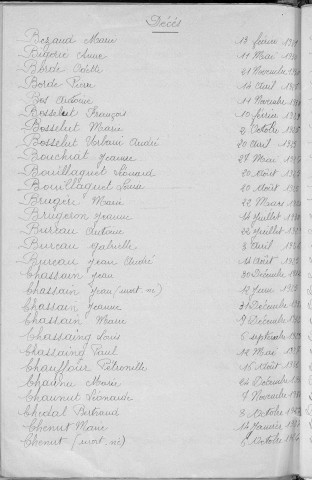 Décès
Bezaud Marie 13 février
Bugerie Anne 11 Mai
Borde Odette 21 Novembre
Borde Pierre 14 avril
Bos Antoine 11 Novembre
Bosselut François 10 février
Bosselut Marie 2 Octobre
Bosselut Urbain André 20 avril
Bouchiat Jeanne 27 Mai
Bouillaguet Léonard 20 août
Bouillaguet Louise 10 août
Brugère Marie 22 Mars
Brugeron Jeanne 14 Juillet
Bureau Antoine 22 Juillet
Bureau Gabrielle 3 avril
Bureau Jean André 14 août
Chassain Jean 30 Décembre
Chassain Jean (mort né) 12 Juin
Chassain Jeanne 31 Décembre
Chassain Marie 7 Décembre
Chassaing Louis 6 septembre
Chassaing Paul 12 Mai
Chauffour Pétronille 15 août
Chaune Marie 24 Décembre
Chaunut Léonarde 7 Novembre
Chedal Bertrand 8 Octobre
Chenut Marie 14 Janvier
Chenut (mort né) 6 Octobre